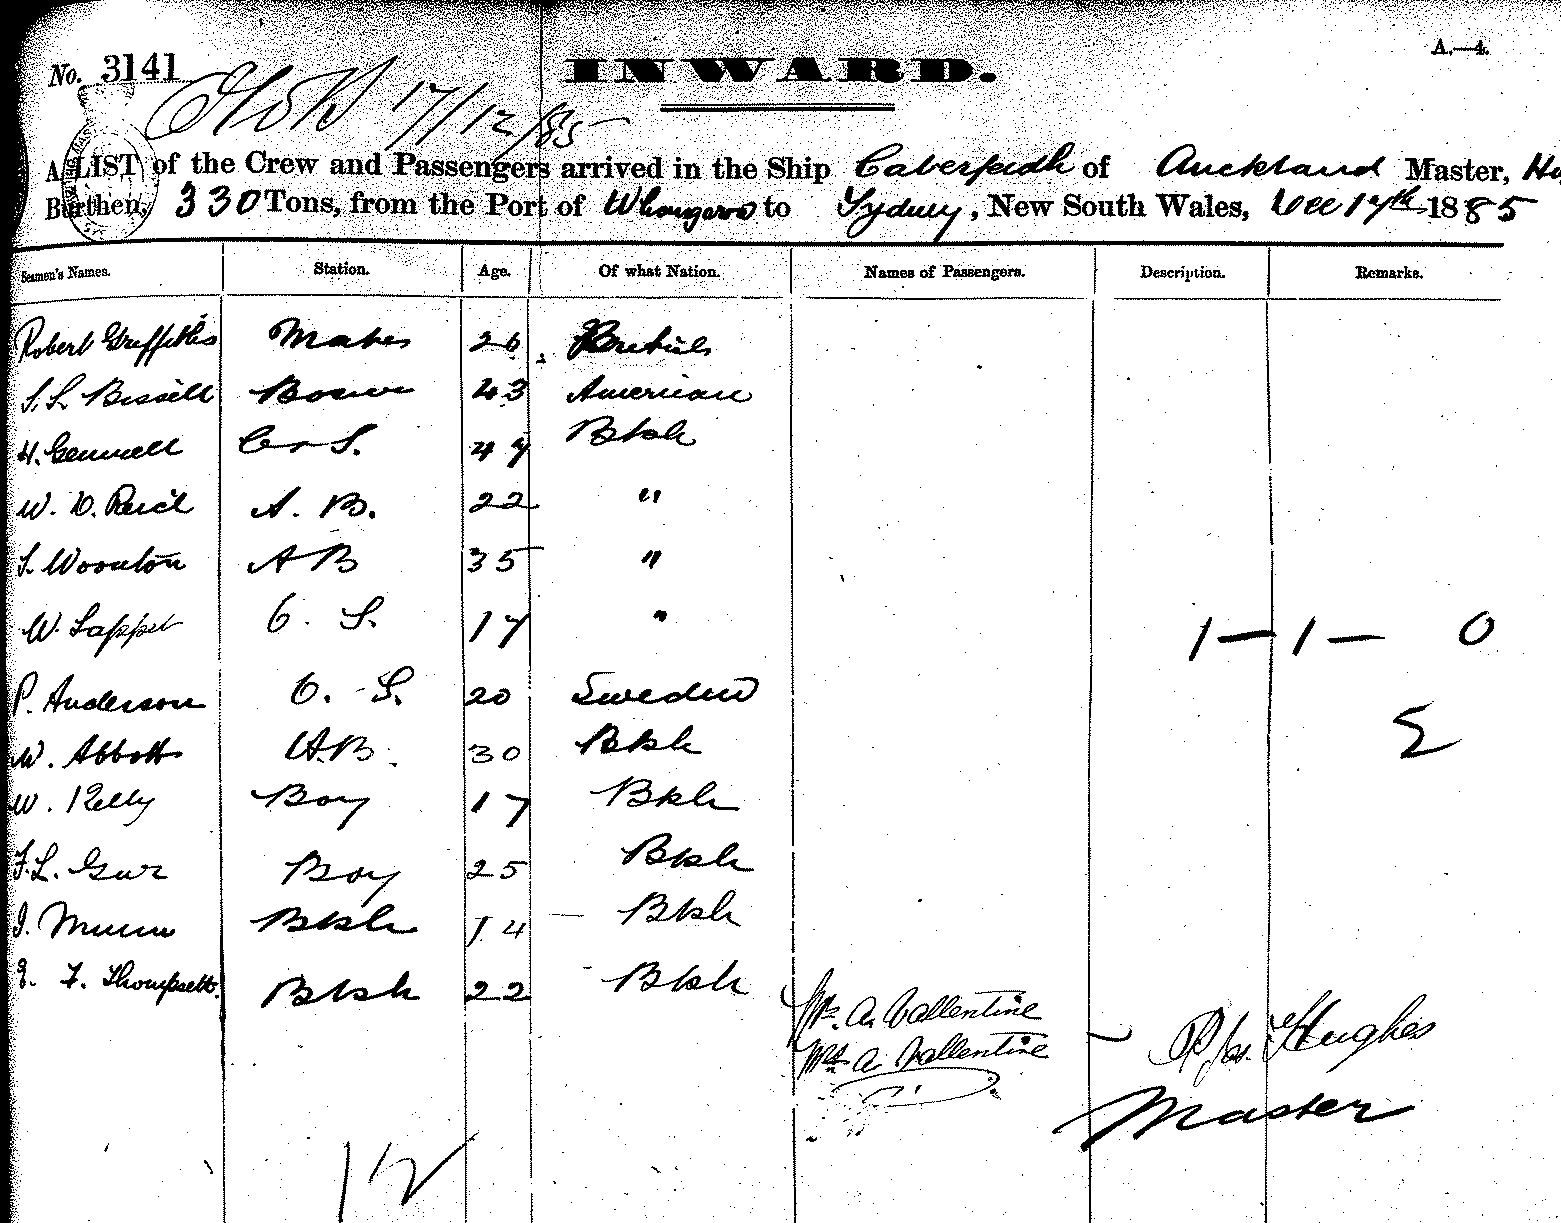 No. 3141
INWARD.
A.—4.
17/12/85
A LIST of the Crew and Passengers arrived in the Ship Caberfeidh of Auckland Master, Hu
Burthen, 330 Tons, from the Port of Whangaroa to Sydney, New South Wales, Dec 17th 1885
Seamen's Names. Station. Age. Of what Nation. Names of Passengers. Description. Remarks.
Robert Griffiths Mate 26 British
S. L. Bissell Bosun 43 American
H. Gennell 47 Btsh
W. D. Reid A. B. 22 "
S. Woonton AB 35 "
W. O. S. 17 " 1 — 1 — 0
P. Anderson O. S. 20 Sweden
W. Abbott A.B. 30 Btsh
W. Kelly Boy 17 Btsh
F. L. Boy 25 Btsh
J. Munn Btsh 14 Btsh
F. Thompsett Btsh 22 Btsh
Mr. A. Vallentine
Mrs A Vallentine
Hughes
Master
12